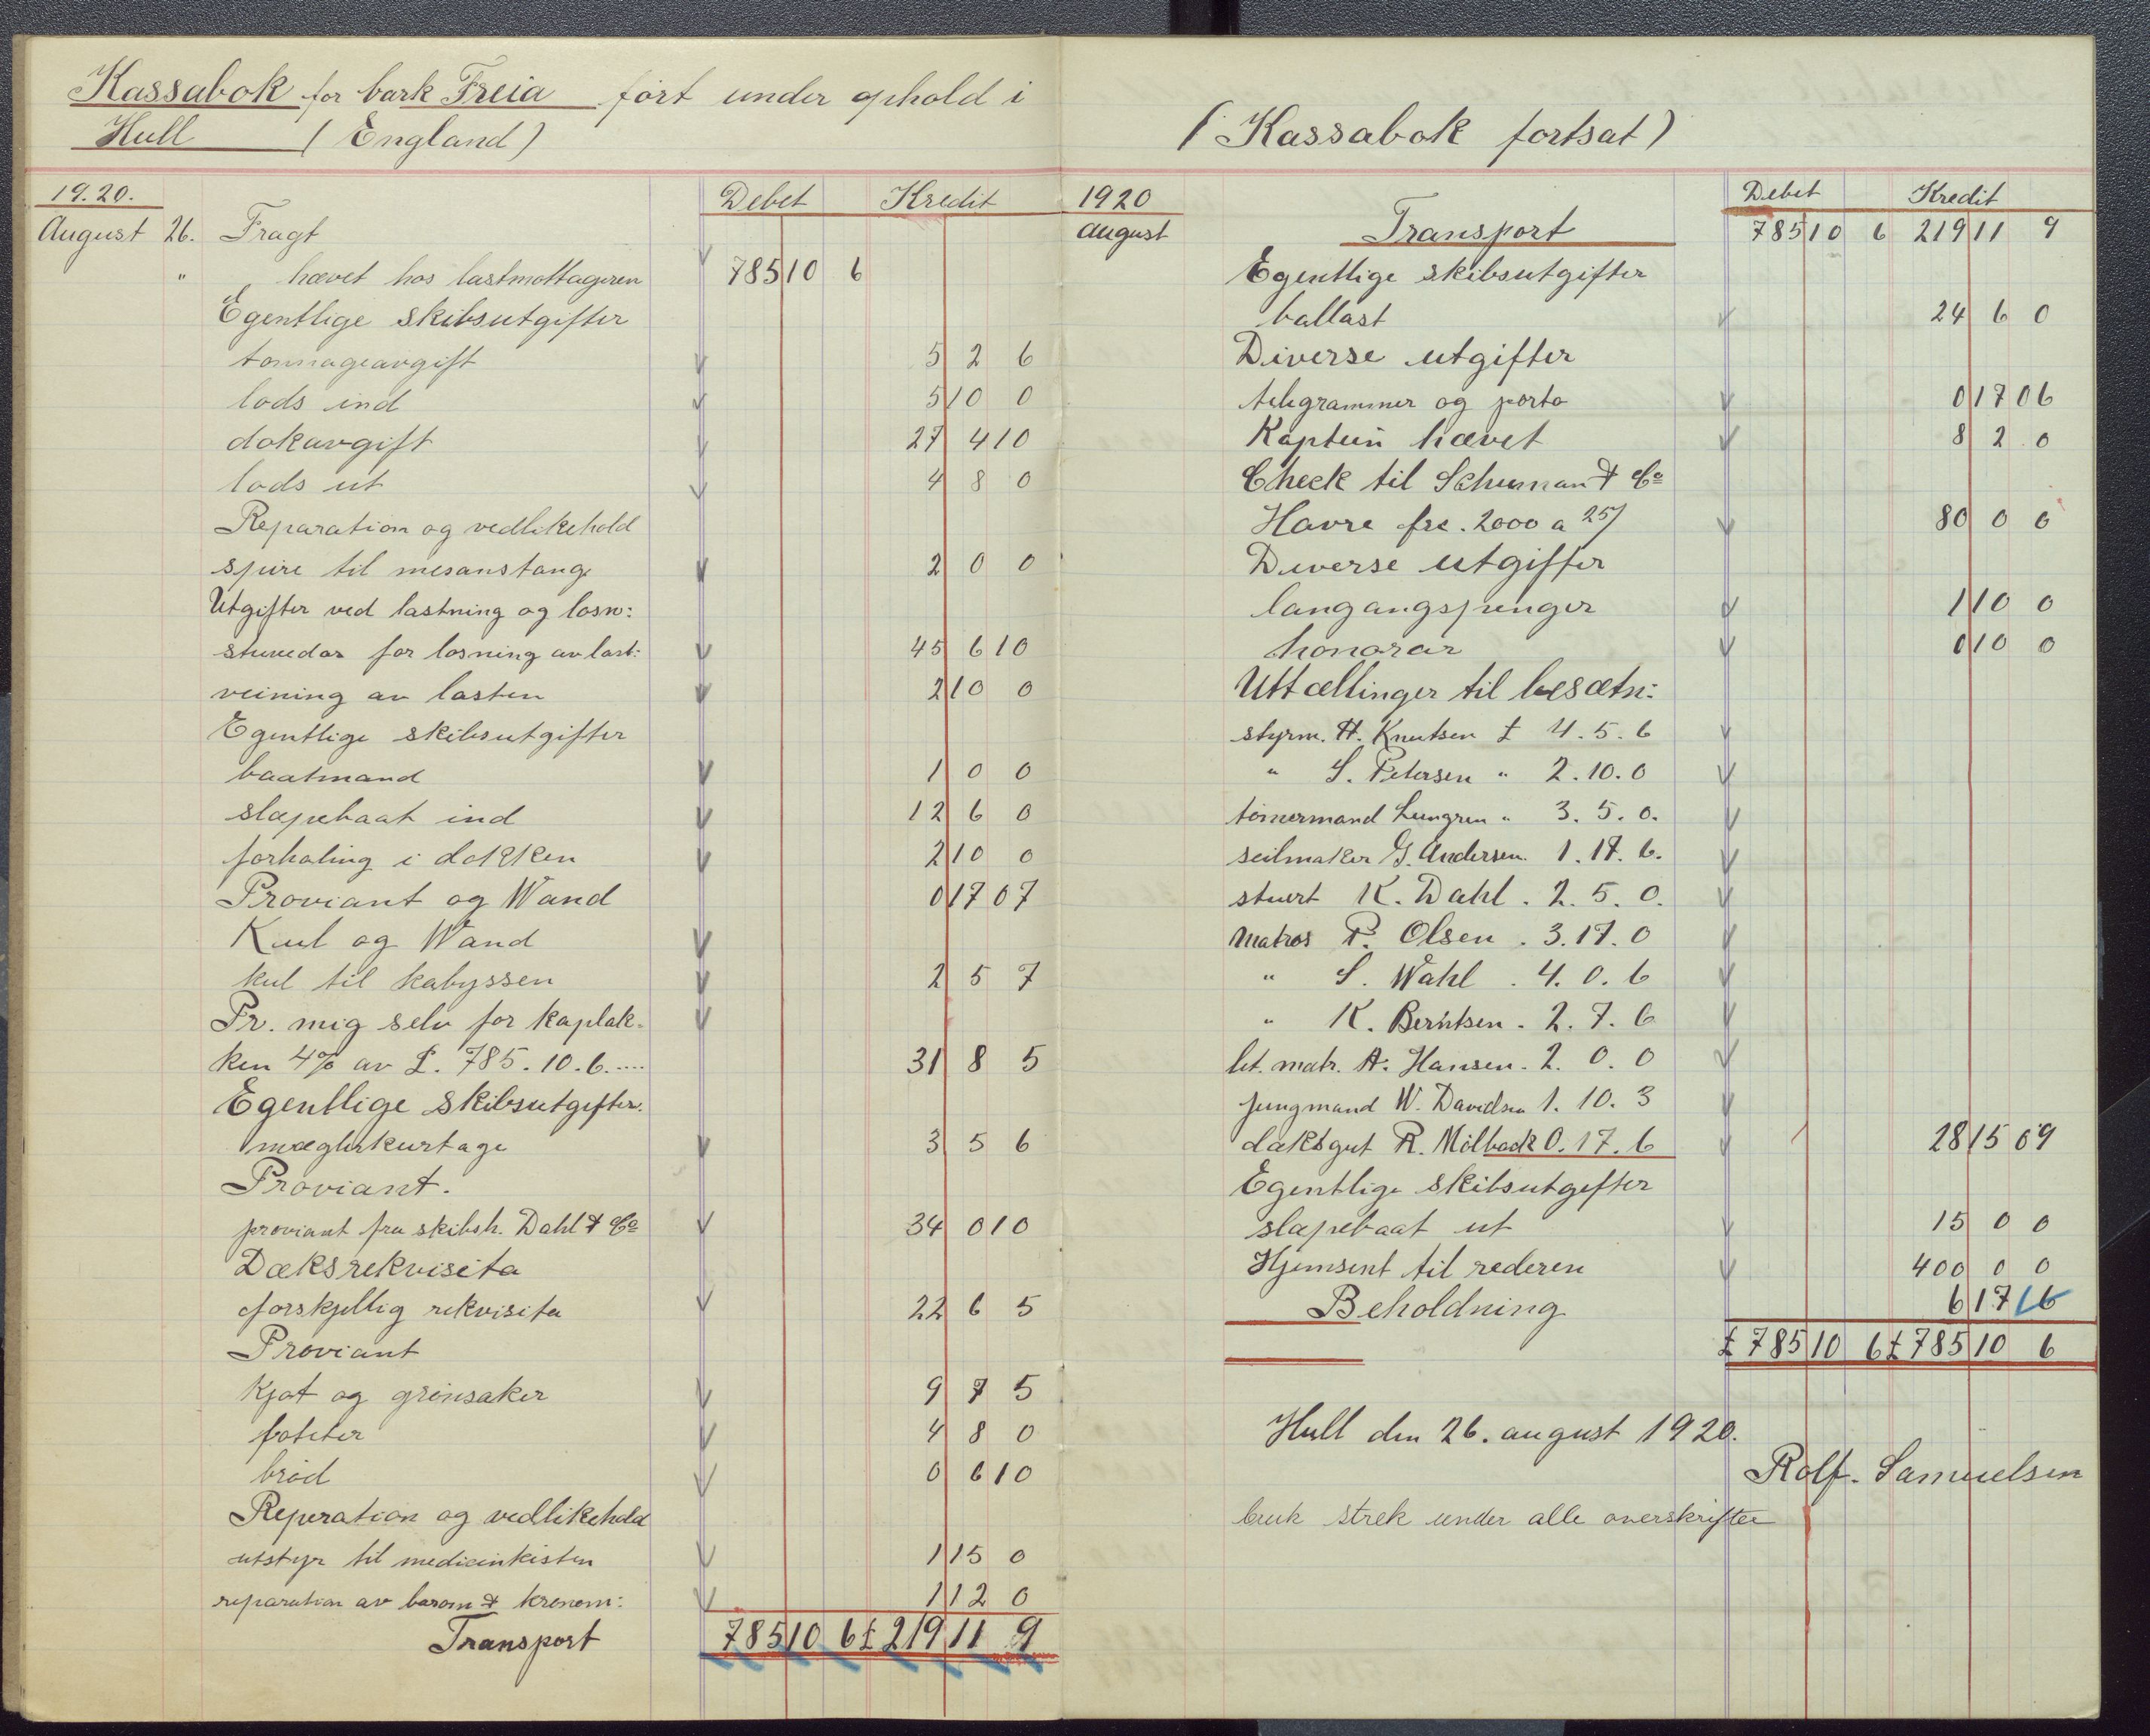 Kassabok for bark Freia ført under ophold i
Hull (England)
19.20. Debet Kredit
August 26. Fragt
" hævet hos lastmottageren 785 10 6
Egentlige skibsutgifter
tonnageavgift 5 2 6
lods ind 5 10 0
dokavgift 27 4 10
lods ut 4 8 0
Reparation og vedlikehold
spire til mesanstange 2 0 0
Utgifter ved lastning og losn:
stuvedor for losning av last: 45 6 10
veining av lasten 2 10 0
Egentlige skibsutgifter
baatmand 1 0 0
slæpebaat ind 12 6 0
forhaling i dokken 2 10 0
Proviant og Wand 0 17 07
Kul og Wand
kul til kabyssen 2 5 7
Pr. mig selv for kaplak-
ken 4% av £. 785.10.6.... 31 8 5
Egentlige skibsutgifter.
mæglerkurtage 3 5 6
Proviant.
proviant fra skibsh. Dahl & Co 34 0 10
Dæksrekvisita
forskjellig rekvisita 22 6 5
Proviant
kjøt og grønsaker 9 7 5
poteter 4 8 0
brød 0 6 10
Reperation og vedlikehold
utstyr til medicinkisten 1 15 0
reparation av barom & kronom: 1 12 0
Transport 785 10 6 £ 219 11 9
(Kassabok fortsat)
1920 Debet Kredit
august Transport 785 10 6 219 11 9
Egentlige skibsutgifter
ballast 24 6 0
Diverse utgifter
telegrammer og porto 0 17 06
Kaptein hævet 8 2 0
Check til Schuman & Co
Havre frc. 2000 a 25/ 80 0 0
Diverse utgifter
langangspenger 1 10 0
honorar 0 10 0
Uttællinger til besætn:
styrm. H. Knutsen £ 4.5.6
" S. Petersen " 2.10.0
tømermand Lungren " 3.5.0.
seilmaker G. Andersen. 1.17.6.
stuert K. Dahl . 2.5.0.
Matros P. Olsen . 3.17.0
" S. Wahl . 4.0.6
" K. Berntsen . 2.7.6
let. matr. A. Hansen . 2.0.0
jungmand W. Davidsen 1.10.3
dæksgut R. Mølback 0.17.6 28 15 09
Egentlige skibsutgifter
slæpebaat ut 15 0 0
Hjemsent til rederen 400 0 0
Beholdning 6 17 6
£ 785 10 6 £ 785 10 6
Hull den 26. august 1920.
Rolf. Samuelsen
bruk strek under alle overskrifter